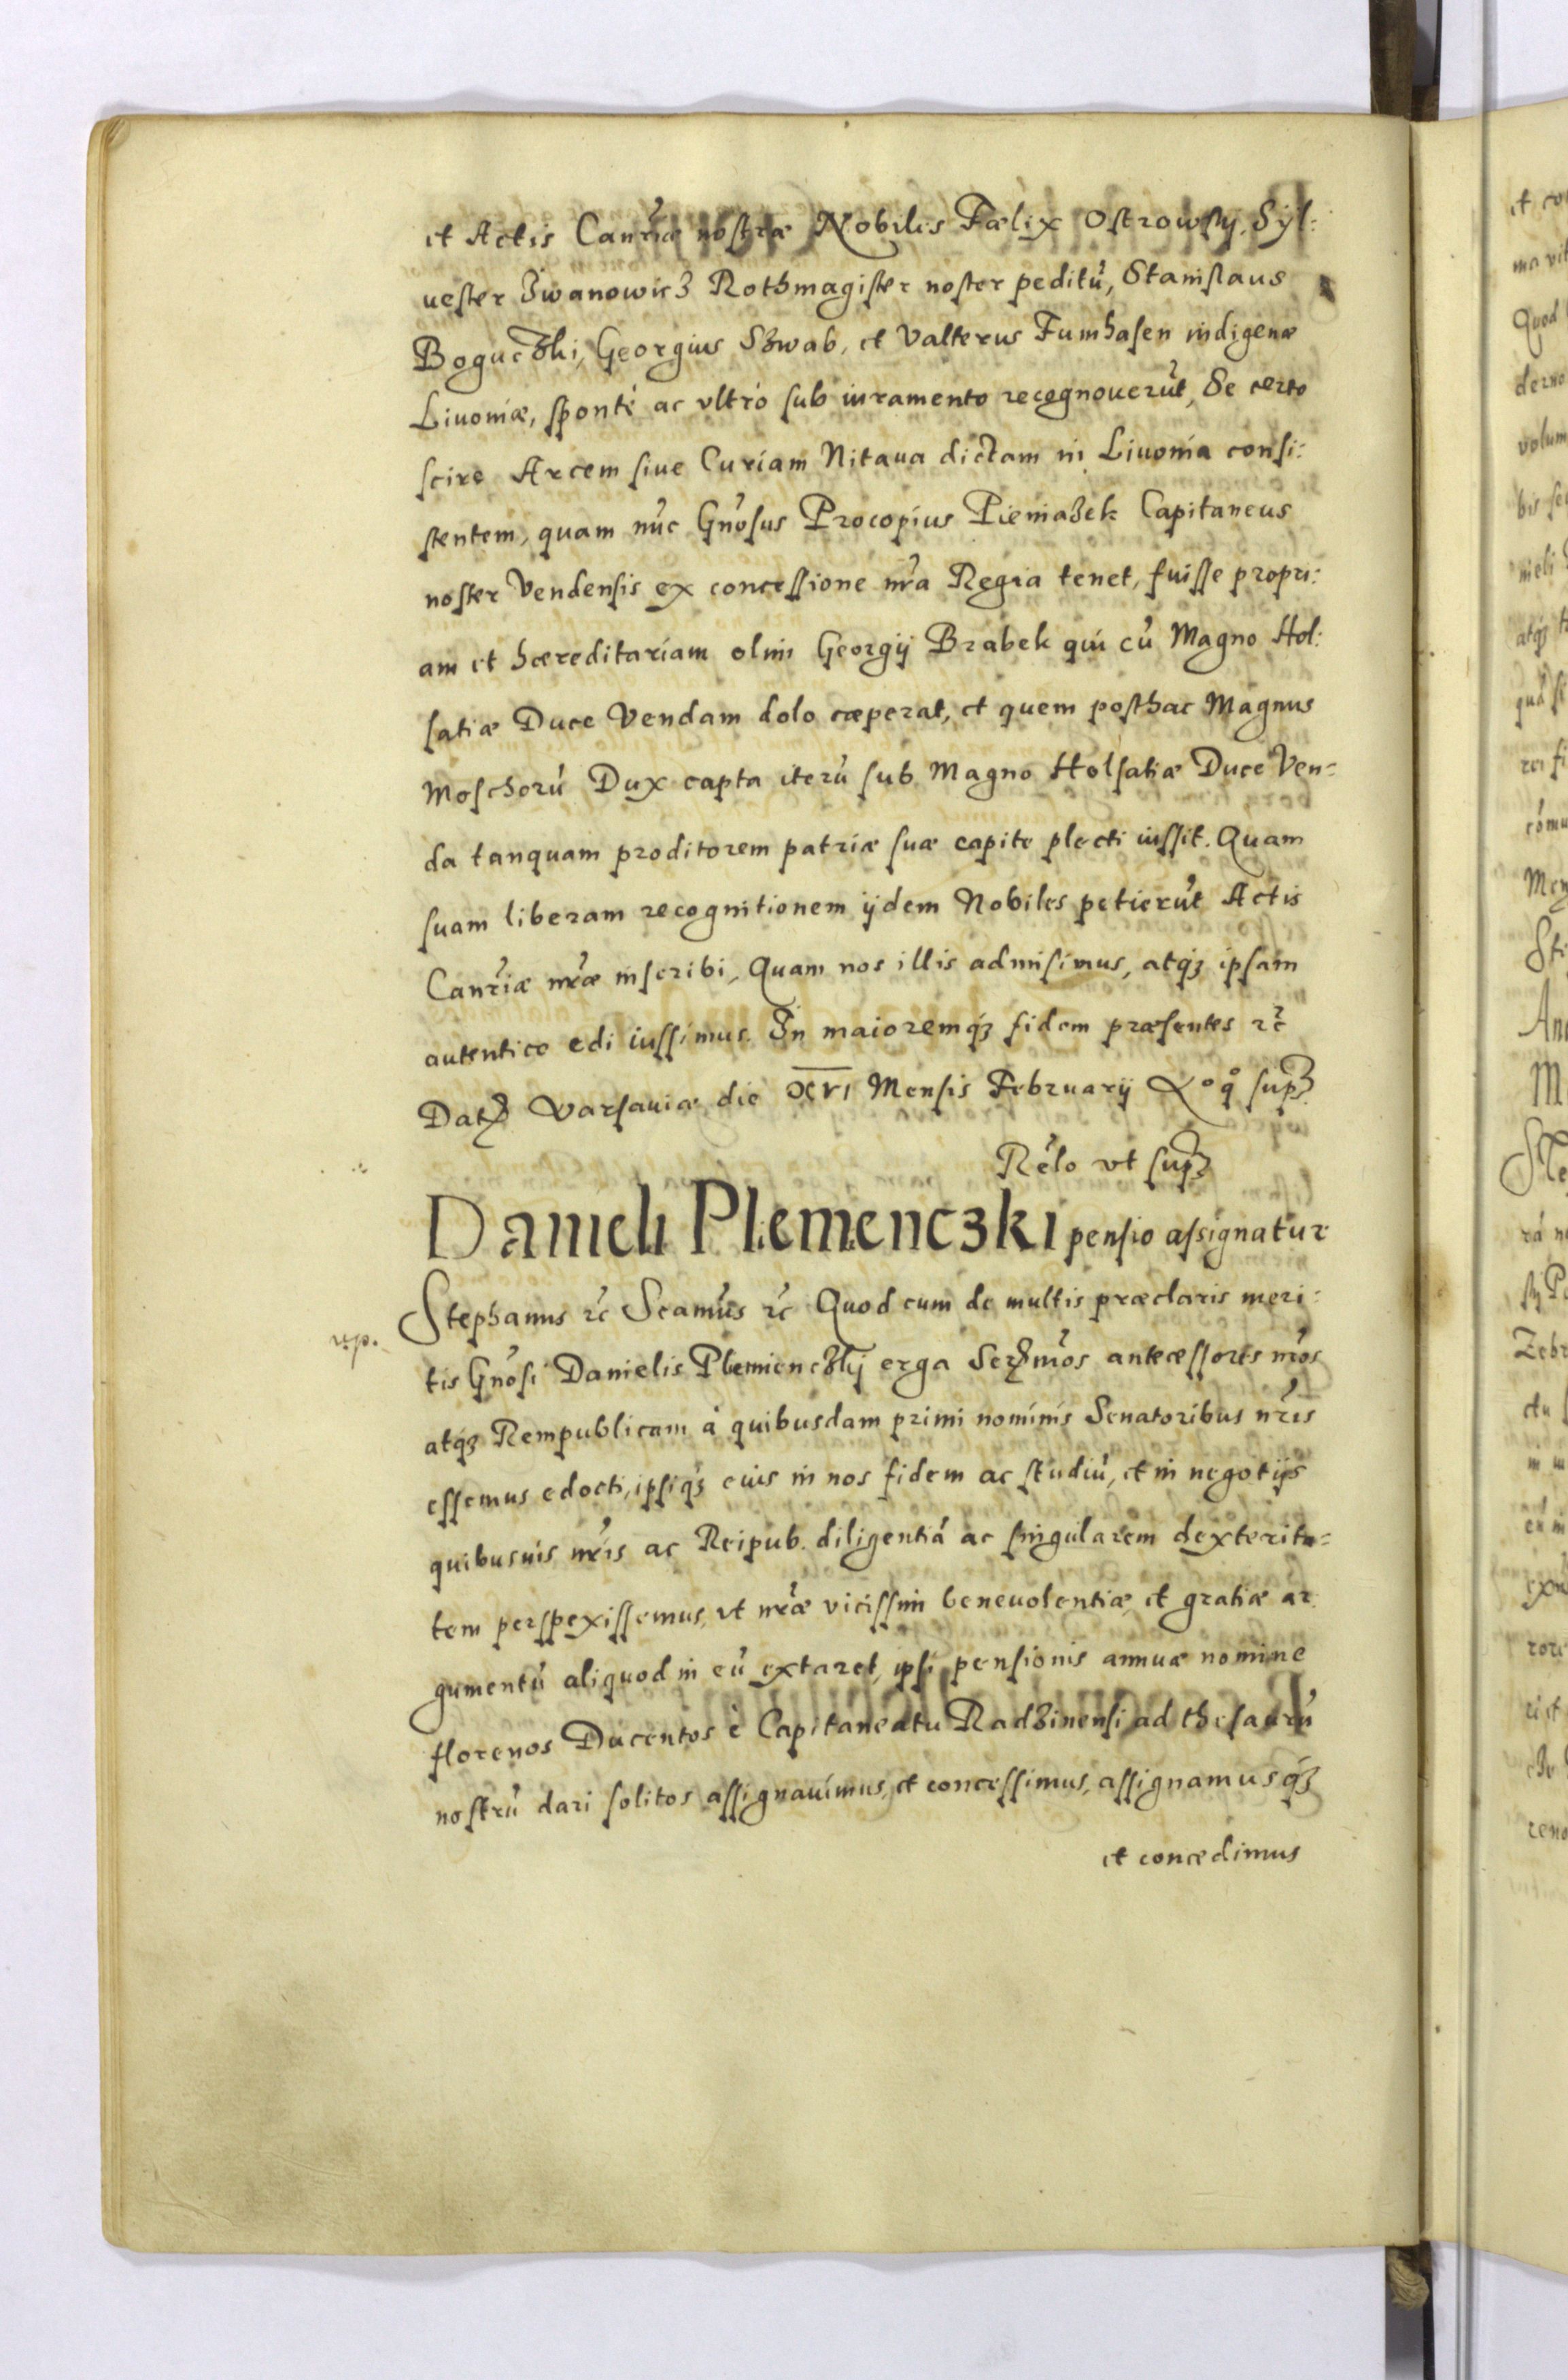 et Actis Canrĩæ nostræ Nobiles Fælix Ostrowsij, Syl:
uester Iwanowicz Rothmagister noster peditũ, Stanislaus
Boguczki, Georgius Szwab, et Valterus Fumhasen indigenæ
Liuoniæ, spontè ac vltrò sub iuramento recognouerũt, Se certo
scire Arcem siue Curiam Nitaua dictam in Liuonia consi:
stentem, quam nũc Gnõsus Procopius Pieniazek Capitaneus
noster Vendensis ex concessione nr̃a Regia tenet, fuisse propri:
am et hæreditariam olim Georgij Brabek qui cũ Magno Hol:
satiæ Duce Vendam dolo cæperat, et quem posthac Magnus
Moschorũ Dux capta iterũ sub Magno Holsatiæ Duce Ven=
da tanquam proditorem patriæ suæ capite plecti iussit. Quam
suam liberam recognitionem ijdem Nobiles petierũt Actis
Canrĩæ nr̃æ inscribi, Quam nos illis admisimus, atqʒ ipsam
autentice edi iussimus. In maioremqʒ fidem præsentes ꝛc̃
Datʒ Varsauiæ die XVI Mensis February supʒ
Rẽlo vt supʒ
Danieli Plemenczki pensio assignatur
Stephanus ꝛc̃ Scamũs ꝛc̃ Quod cum de multis præclaris meri:
tis Gnõsi Danielis Plemienczkij erga Serʒmõs antecessores nr̃os
atqʒ Rempublicam à quibusdam primi nominis Senatoribus nr̃is
essemus edocti, ipsiqʒ eius in nos fidem ac studiũ, et in negotijs
quibusuis nr̃is ac Reipub. diligentiã ac singularem dexterita=
tem perspexissemus, vt nr̃æ vicissim beneuolentiæ, et gratiæ ar
gumentũ aliquod in eũ extaret, ipsi pensionis annuæ nomine
florenos Ducentos è Capitaneatu Radzinensi ad thesaurũ
nostrũ dari solitos assignauimus, et concessimus, assignamusqʒ
et concedimus